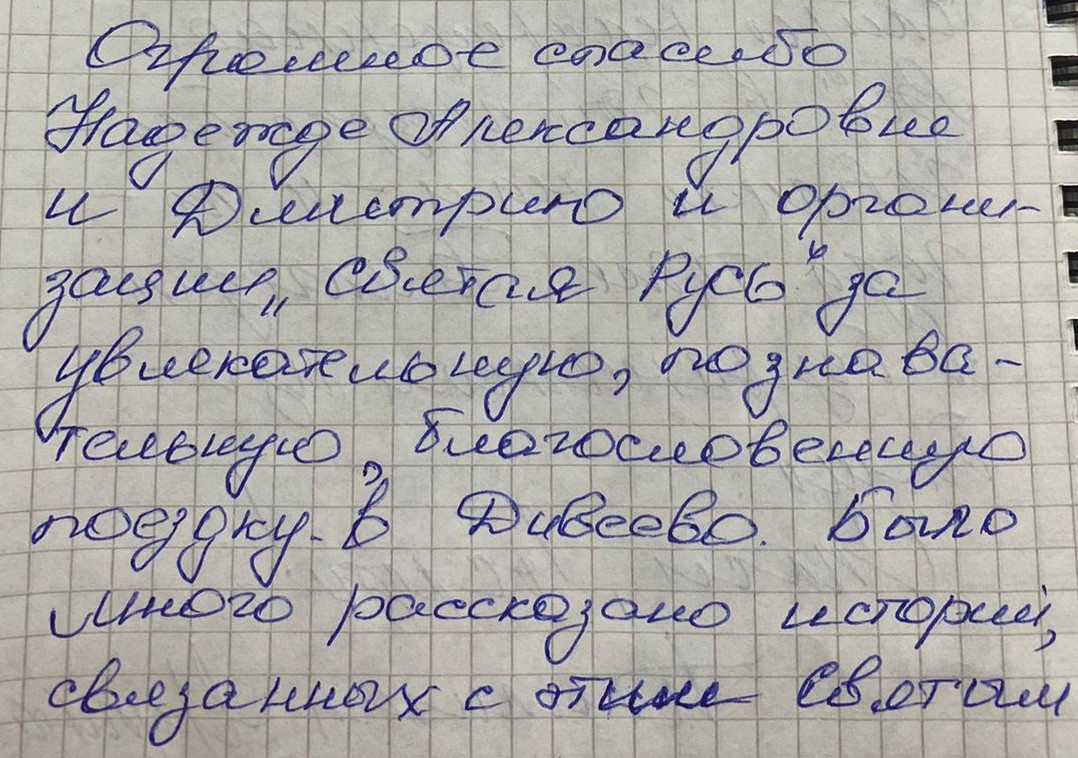 Огромное спасибо
Надежде Александровне
и Дмитрию и органи-
зации „Святая Русь“ за
увлекательную, познава-
тельную, благословенную
поездку в Дивеево. Было
много рассказано историй,
связанных с этим Святым